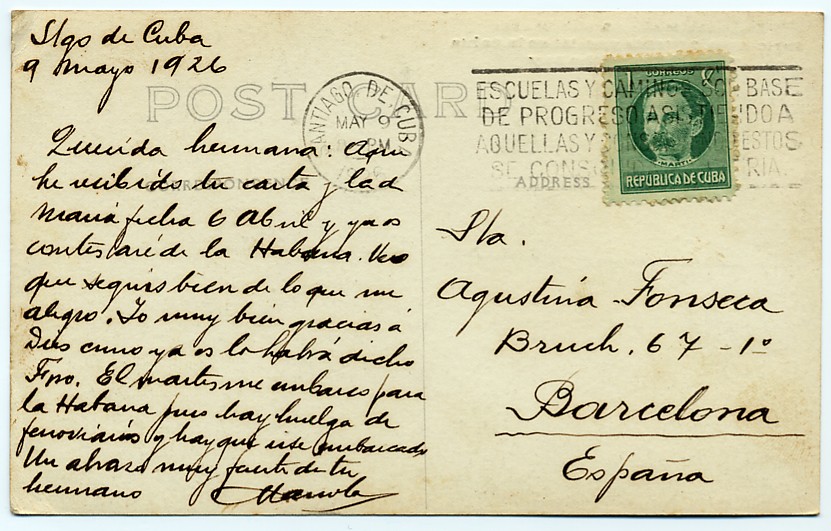 Stgo de Cuba
9 Mayo 1926
POST CARD
SANTIAGO DE CUBA
MAY 9
PM
ESCUELAS Y CAMINOS SON BASE
DE PROGRESO ASISTIENDO A
AQUELLAS Y
SE CONS
CORREOS
MARTI
REPUBLICA DE CUBA
CORRESPONDENCE
ADDRESS
Querida hermana: Aqui
he recibido tu carta y la d
Maria fecha 6 Abril y ya os
contestaré de la Habana. Veo
que seguis bien de lo que me
alegro. Yo muy bien gracias á
Dios como ya os lo habrá dicho
Fco. El martes me embarco para
la Habana pues hay huelga de
ferroviarios y hay que irse embarcado
Un abrazo muy fuerte de tu
hermano Manolo
Sta.
Agustina Fonseca
Bruch. 67 - 1º
Barcelona
España